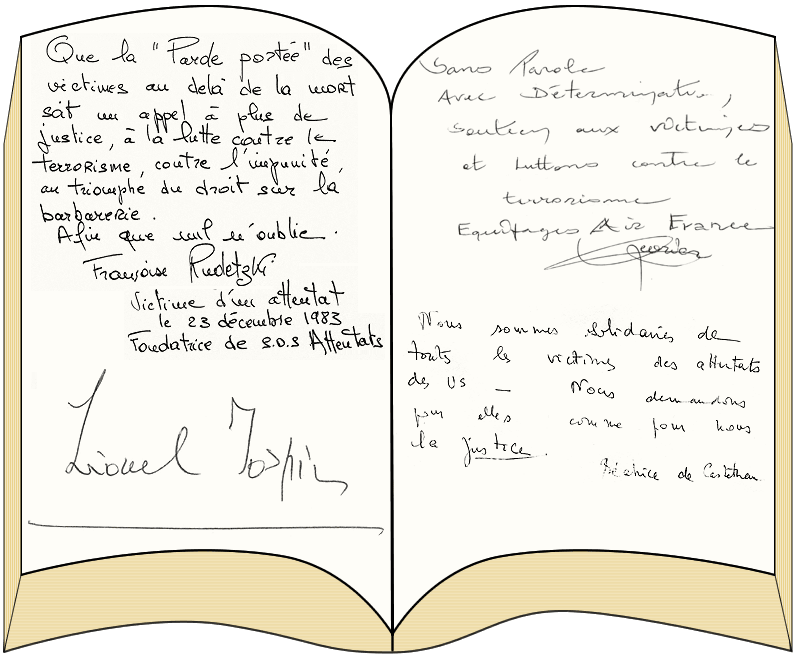 Que la "Parole portée" des
victimes au delà de la mort
soit un appel à plus de
justice, à la lutte contre le
terrorisme, contre l'impunité,
au triomphe du droit sur la
barbarerie.
Afin que nul n'oublie.
Françoise Rudetzki
Victime d'un attentat
le 23 décembre 1983
Fondatrice de S.O.S Attentats
Lionel Jospin
Sans Parole
Avec Détermination,
soutien aux victimes
et luttons contre le
terrorisme
Equipages Air France
Nous sommes solidaires de
touts les victimes des attentats
des US — Nous demandons
pour elles comme pour nous
la justice.
Béatrice de